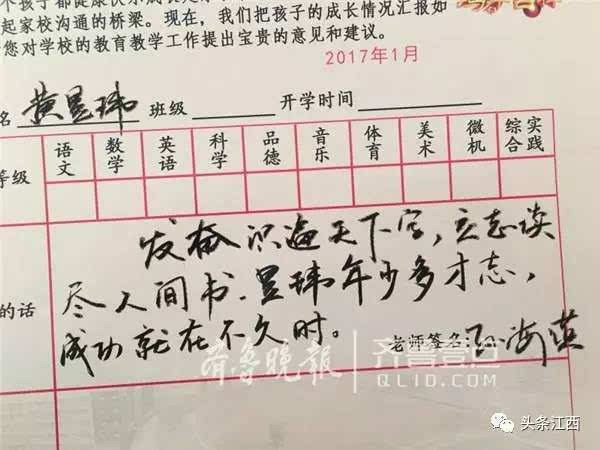 个孩子都健康快乐成长是
起家校沟通的桥梁。现在，我们把孩子的成长情况汇报如
您对学校的教育教学工作提出宝贵的意见和建议。
2017年1月
名 黄昱玮 班级 开学时间
等级 语文 数学 英语 科学 品德 音乐 体育 美术 微机 综合实践
发奋识遍天下字，立志读
尽人间书.昱玮年少多才志，
的话
成功就在不久时。
老师签名: 孙海英
齐鲁晚报 齐鲁壹点
QLID.COM
头条江西